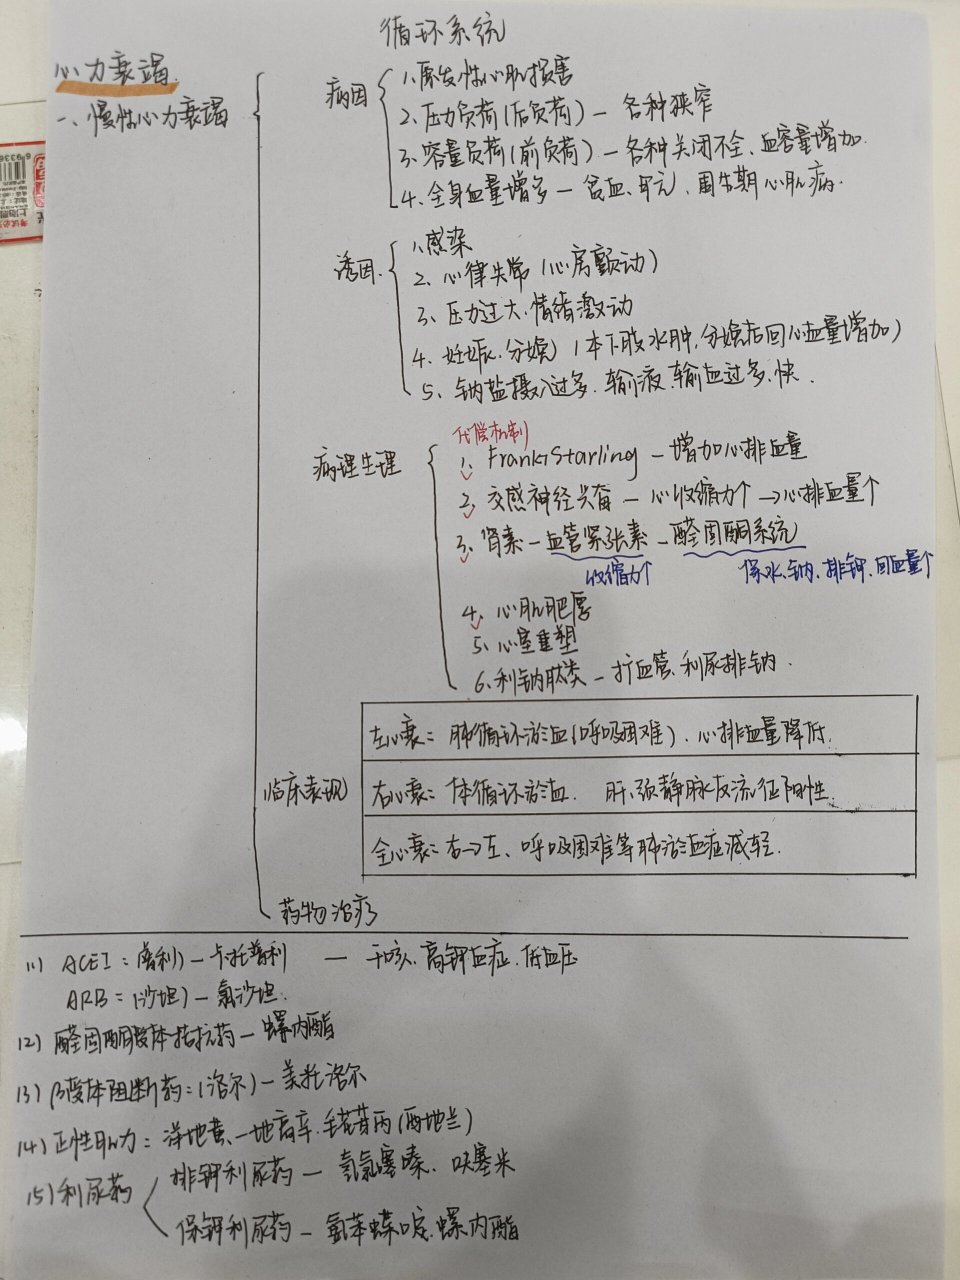 循环系统
心力衰竭.
一、慢性心力衰竭
病因
1.原发性心肌损害
2.压力负荷(后负荷) — 各种狭窄
3.容量负荷(前负荷) — 各种关闭不全、血容量增加.
4.全身血量增多 — 贫血、甲亢、围生期心肌病.
诱因.
1.感染
2.心律失常(心房颤动)
3、压力过大.情绪激动
4、妊娠.分娩)(本下肢水肿,分娩后回心血量增加)
5、钠盐摄入过多.输液输血过多、快.
病理生理
代偿机制
1、Frank-Starling — 增加心排血量
2、交感神经兴奋 — 心收缩力↑→心排血量↑
3、肾素 — 血管紧张素 — 醛固酮系统
收缩力↑
保水、钠、排钾、回血量↑
4、心肌肥厚
5、心室重塑
6、利钠肽类 — 扩血管、利尿排钠.
临床表现
左心衰：肺循环淤血(呼吸困难)、心排血量降低.
右心衰：体循环淤血. 肝、颈静脉反流征阳性.
全心衰：右→左、呼吸困难等肺淤血症减轻.
药物治疗
(1) ACEI：(普利) — 卡托普利 — 干咳、高钾血症.低血压
ARB：(沙坦) — 氯沙坦.
(2) 醛固酮受体拮抗药 — 螺内酯
(3) β受体阻断药：(洛尔) — 美托洛尔
(4) 正性肌力：洋地黄、— 地高辛.毛花苷丙(西地兰)
(5) 利尿药
排钾利尿药 — 氢氯噻嗪、呋塞米
保钾利尿药 — 氨苯蝶啶.螺内酯